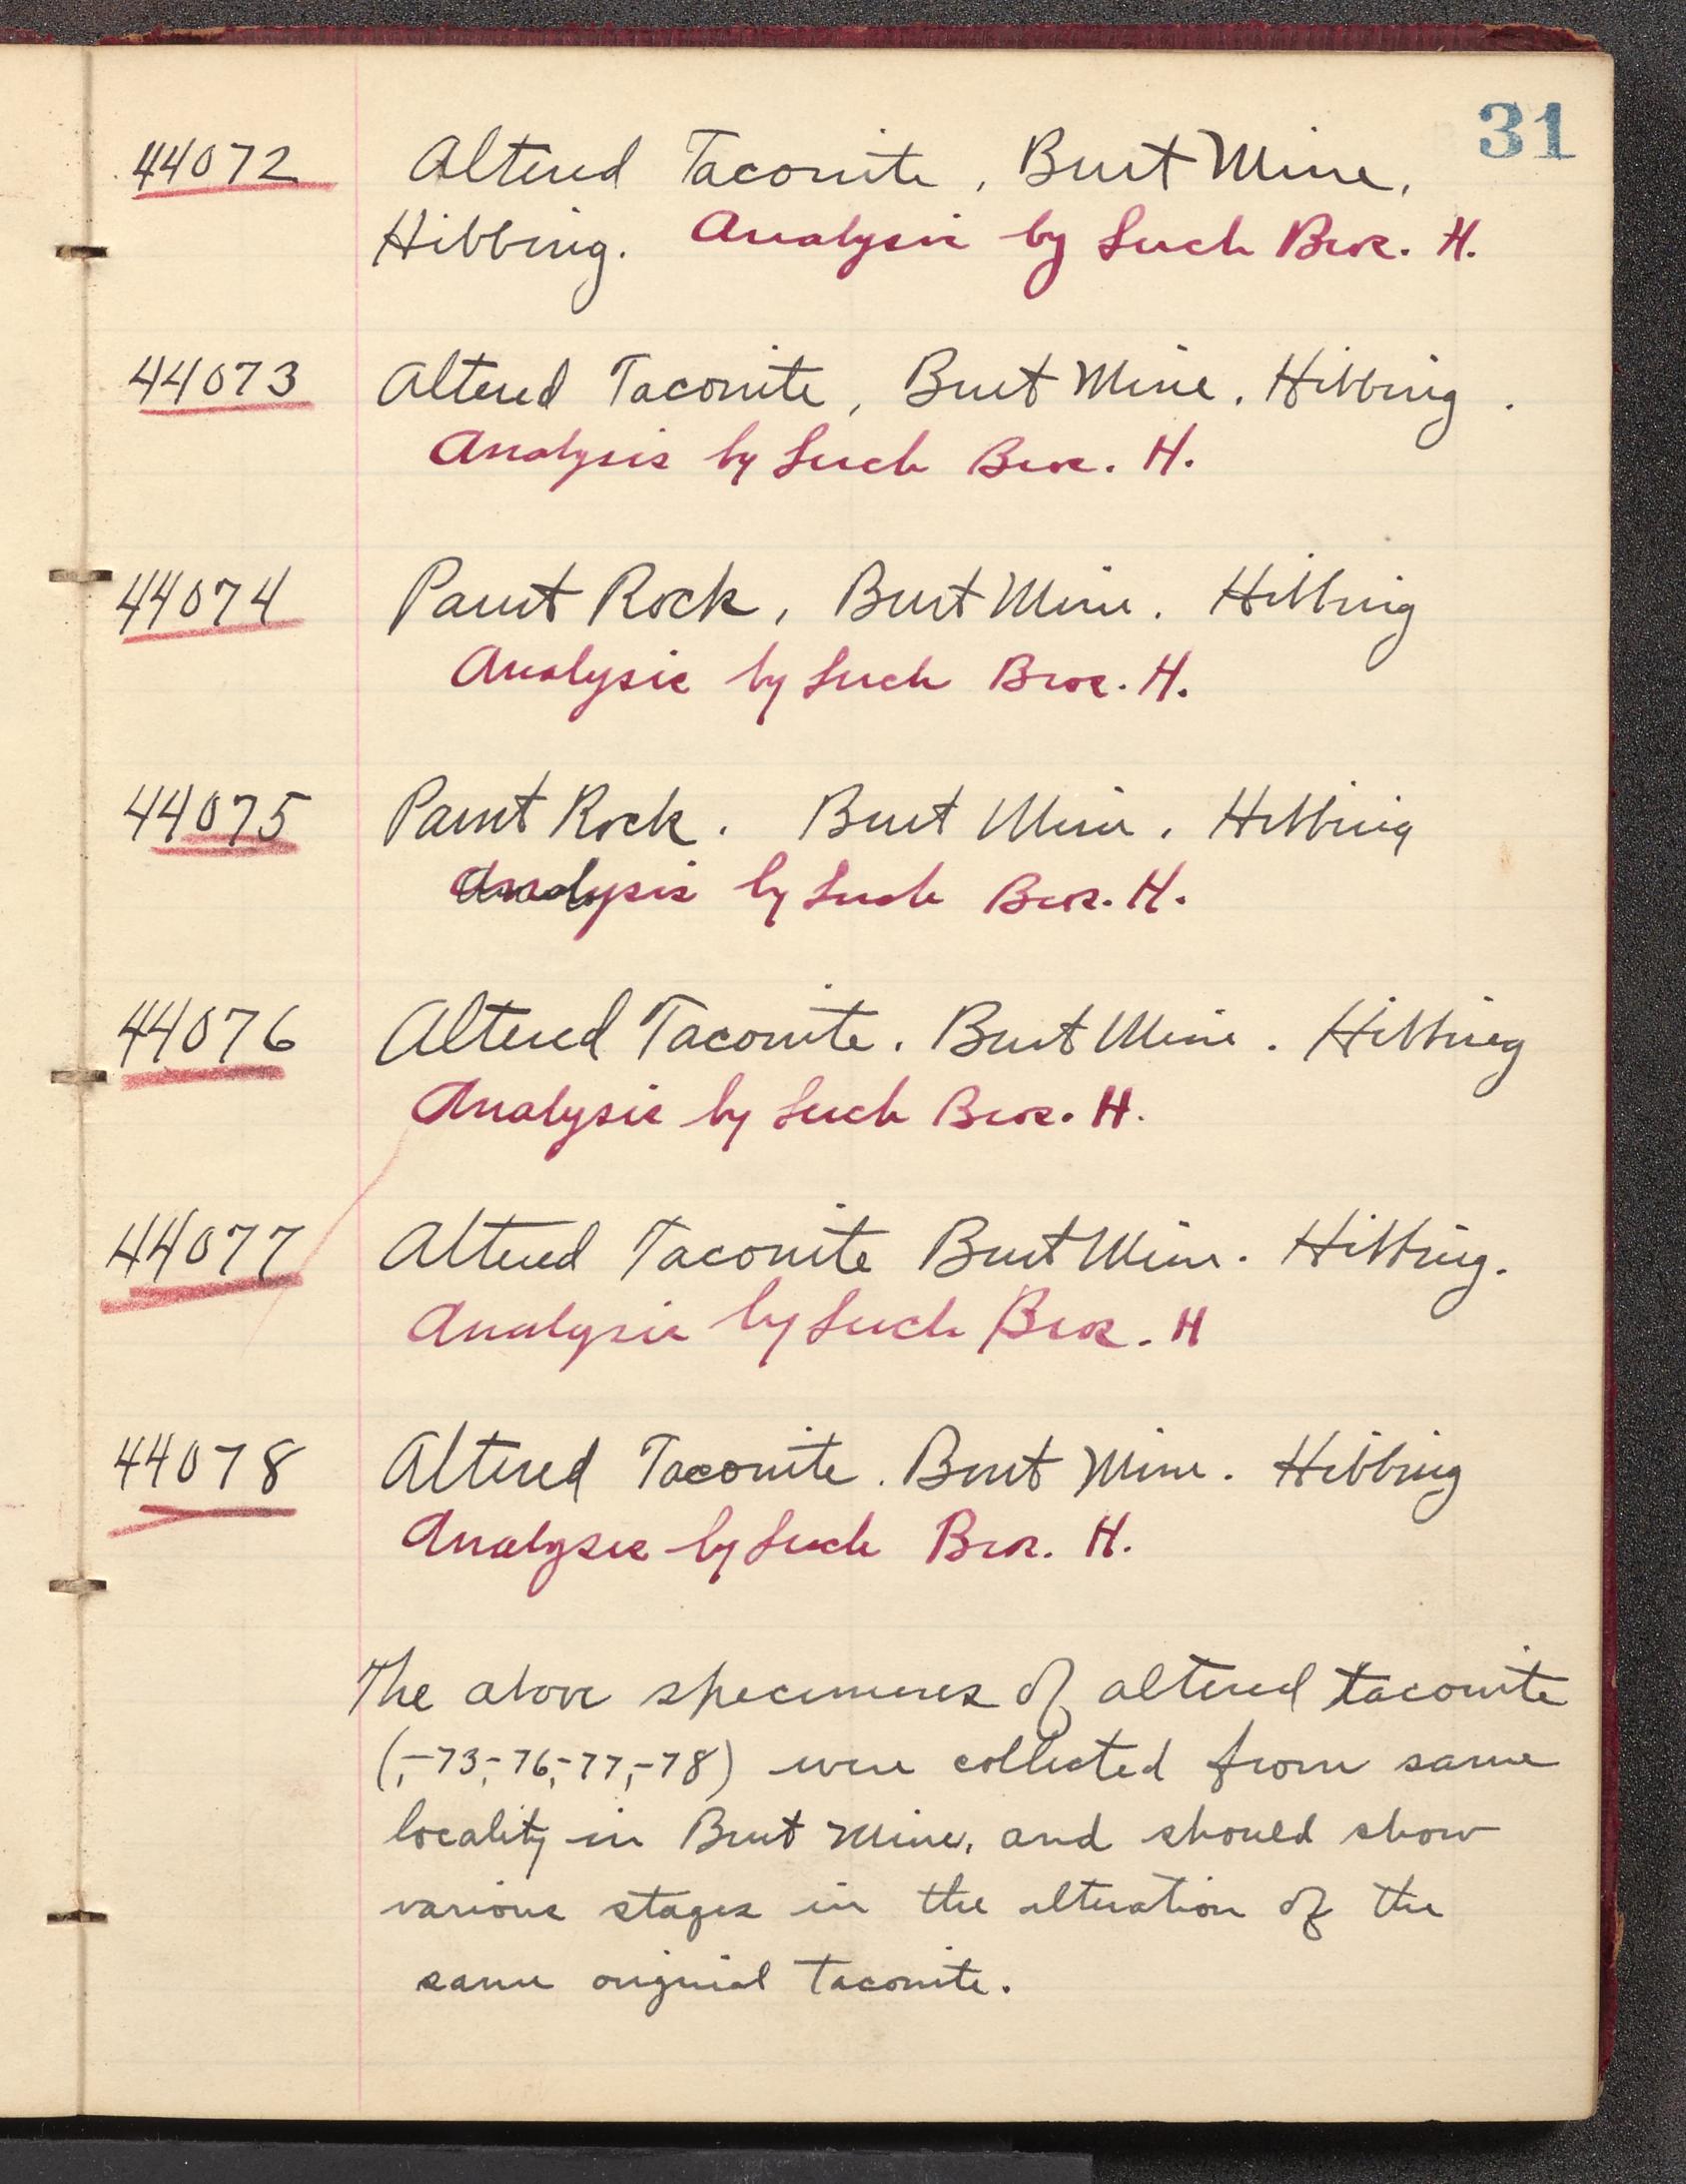 31
44072 Altered Taconite, Burt Mine,
Hibbing. Analysis by Lerch Bros. H.
44073 Altered Taconite, Burt Mine. Hibbing.
Analysis by Lerch Bros. H.
44074 Paint Rock, Burt Mine. Hibbing
Analysis by Lerch Bros. H.
44075 Paint Rock. Burt Mine. Hibbing
Analysis by Lerch Bros. H.
44076 Altered Taconite. Burt Mine. Hibbing
Analysis by Lerch Bros. H.
44077 Altered Taconite Burt Mine. Hibbing.
Analysis by Lerch Bros. H
44078 Altered Taconite. Burt Mine. Hibbing
Analysis by Lerch Bros. H.
The above specimens of altered taconite
(,-73,-76,-77,-78) were collected from same
locality in Burt Mine, and should show
various stages in the alteration of the
same original taconite.